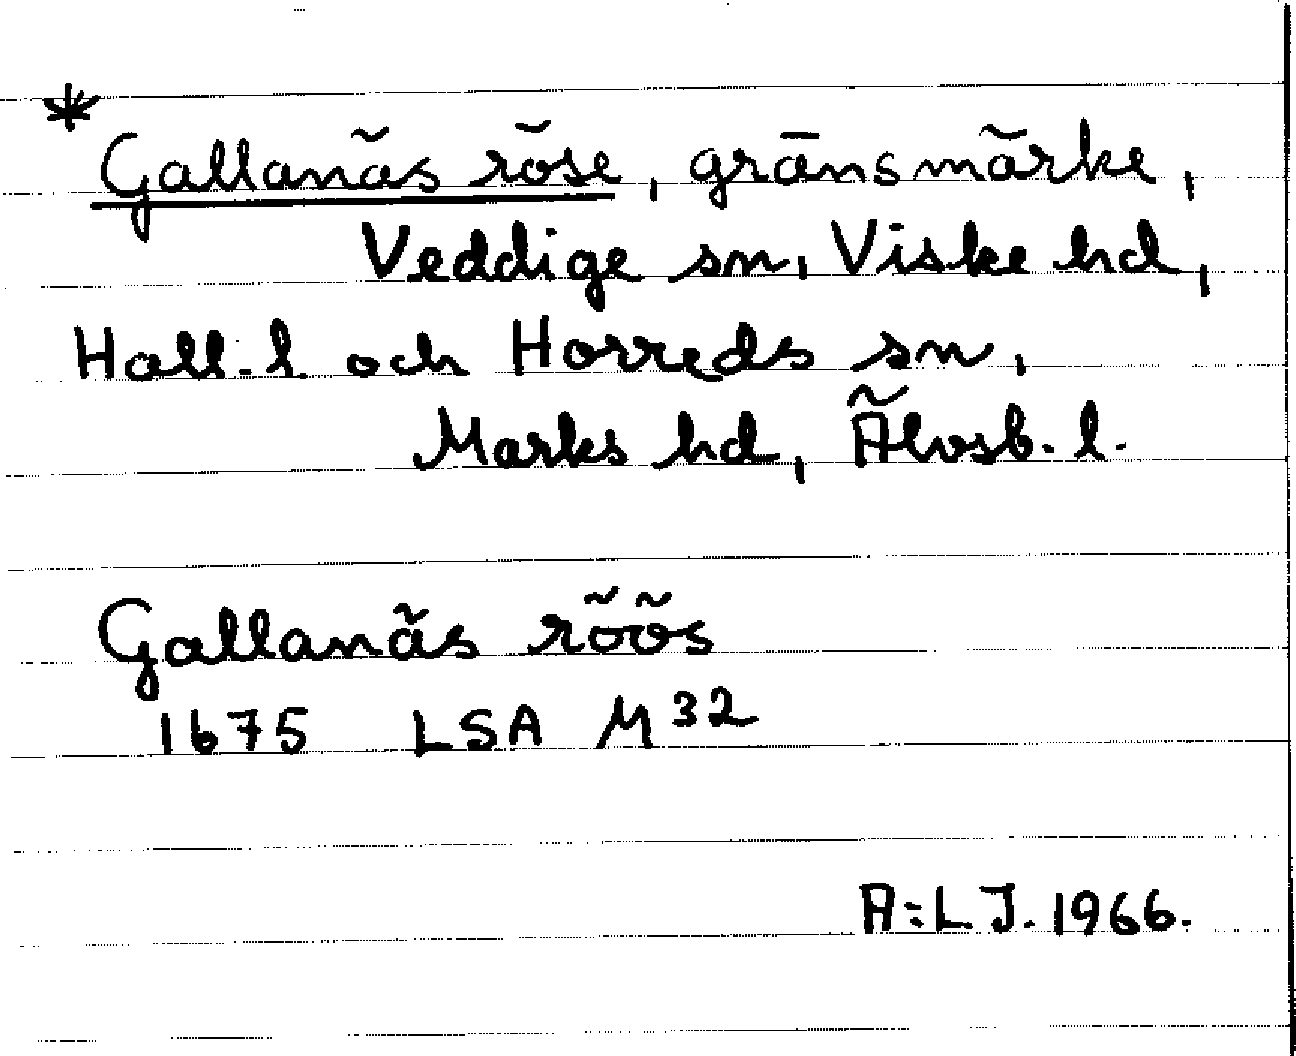 * Gallanäs röse, gränsmärke,
Veddige sn, Viske hd,
Hall. l. och Horreds sn,
Marks hd, Älvsb. l.
Gallanäs röös
1675 LSA M 32
A:L J. 1966.